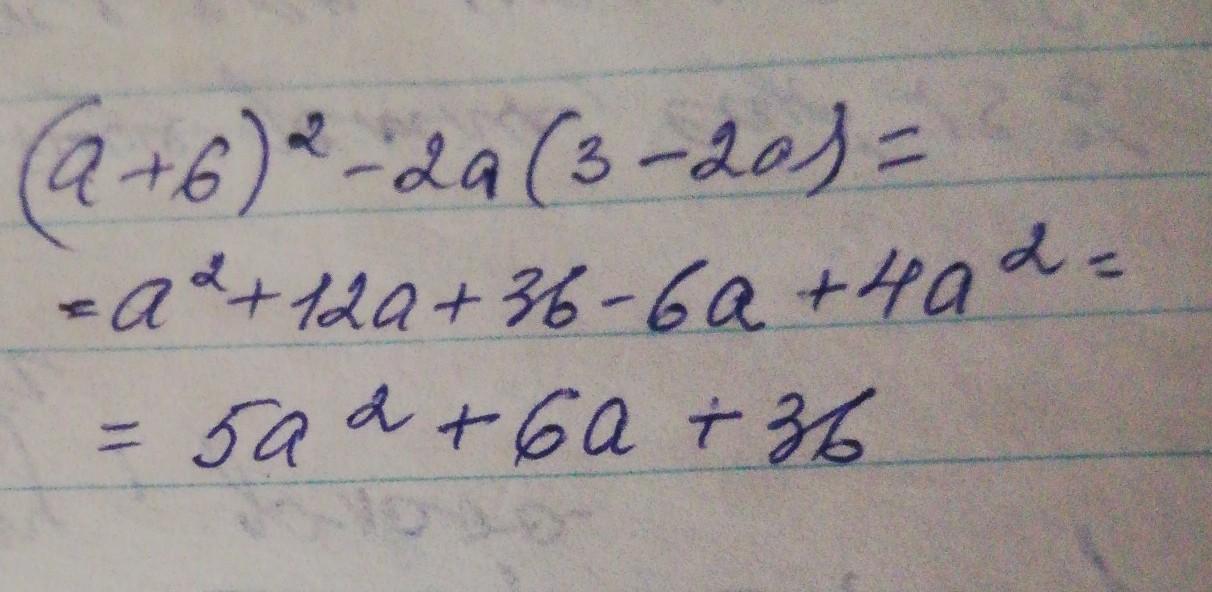 (a+6)² - 2a(3-2a) =
= a² + 12a + 36 - 6a + 4a² =
= 5a² + 6a + 36